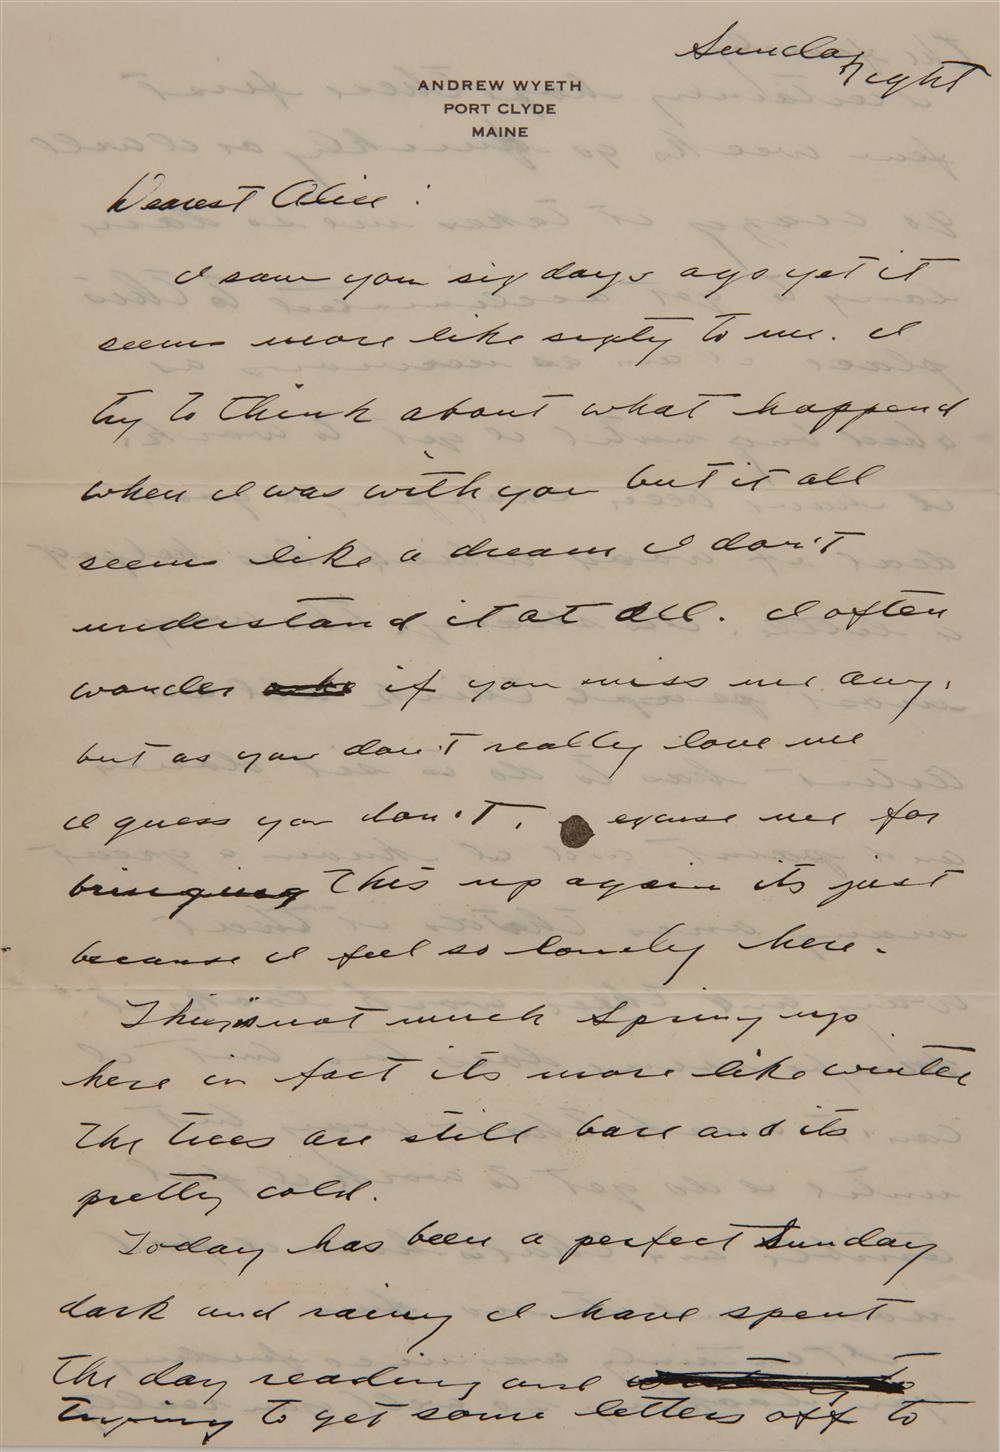 Sunday night
ANDREW WYETH
PORT CLYDE
MAINE
Dearest Alice :
I saw you six days ago yet it
seems more like sixty to me. I
try to think about what happend
when I was with you but it all
seems like a dream I don't
understand it at all. I often
wonder if you miss me any,
but as you don't really love me
I guess you don't, excuse me for
bringing this up again its just
because I feel so lonely here.
This is not much Spring up
here in fact its more like winter
The trees are still bare and its
pretty cold.
Today has been a perfect Sunday
dark and rainy I have spent
The day reading and
trying to get some letters off to